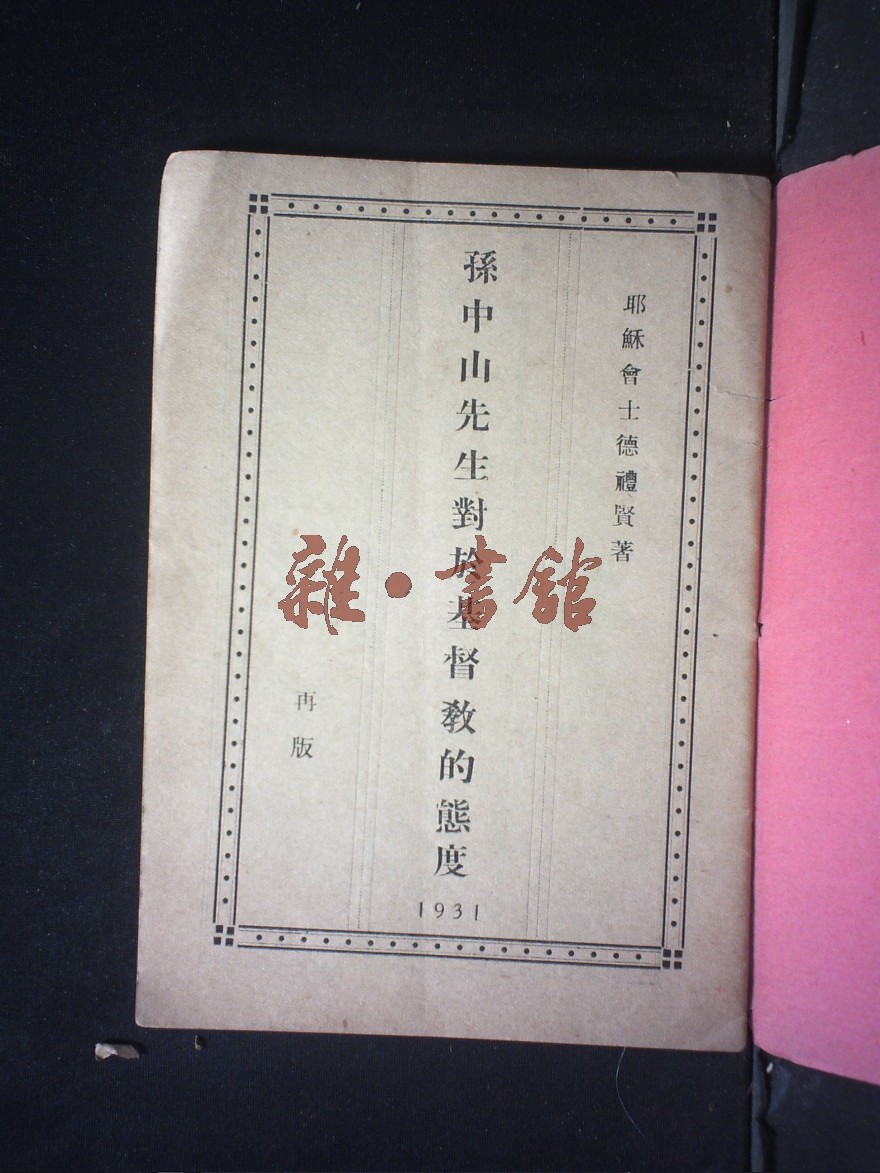 耶穌會士德禮賢著
孫中山先生對於基督教的態度
1931
再版
雜·書館